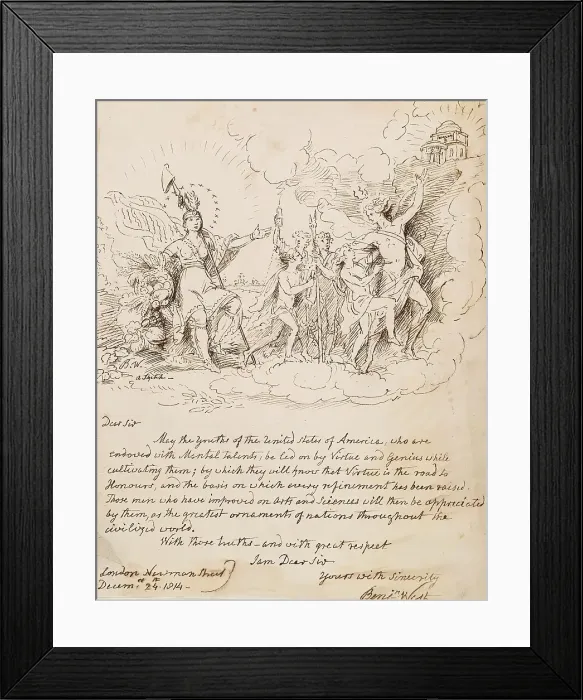 B. W.
Dear Sir
May the Youths of the United States of America, who are
endowed with Mental talents, be led on by Virtue and Genius while
cultivating them; by which they will know that Virtue is the road to
Honours, and the basis on which every refinement has been raised.
Those men who have improved on arts and sciences will then be appreciated
by them, as the greatest ornaments of nations throughout the
civilized world.
With those truths - and with great respect
I am Dear Sir
London Newman Street
Yours with Sincerity
Decem.er 24th 1814 -
Benj.n West